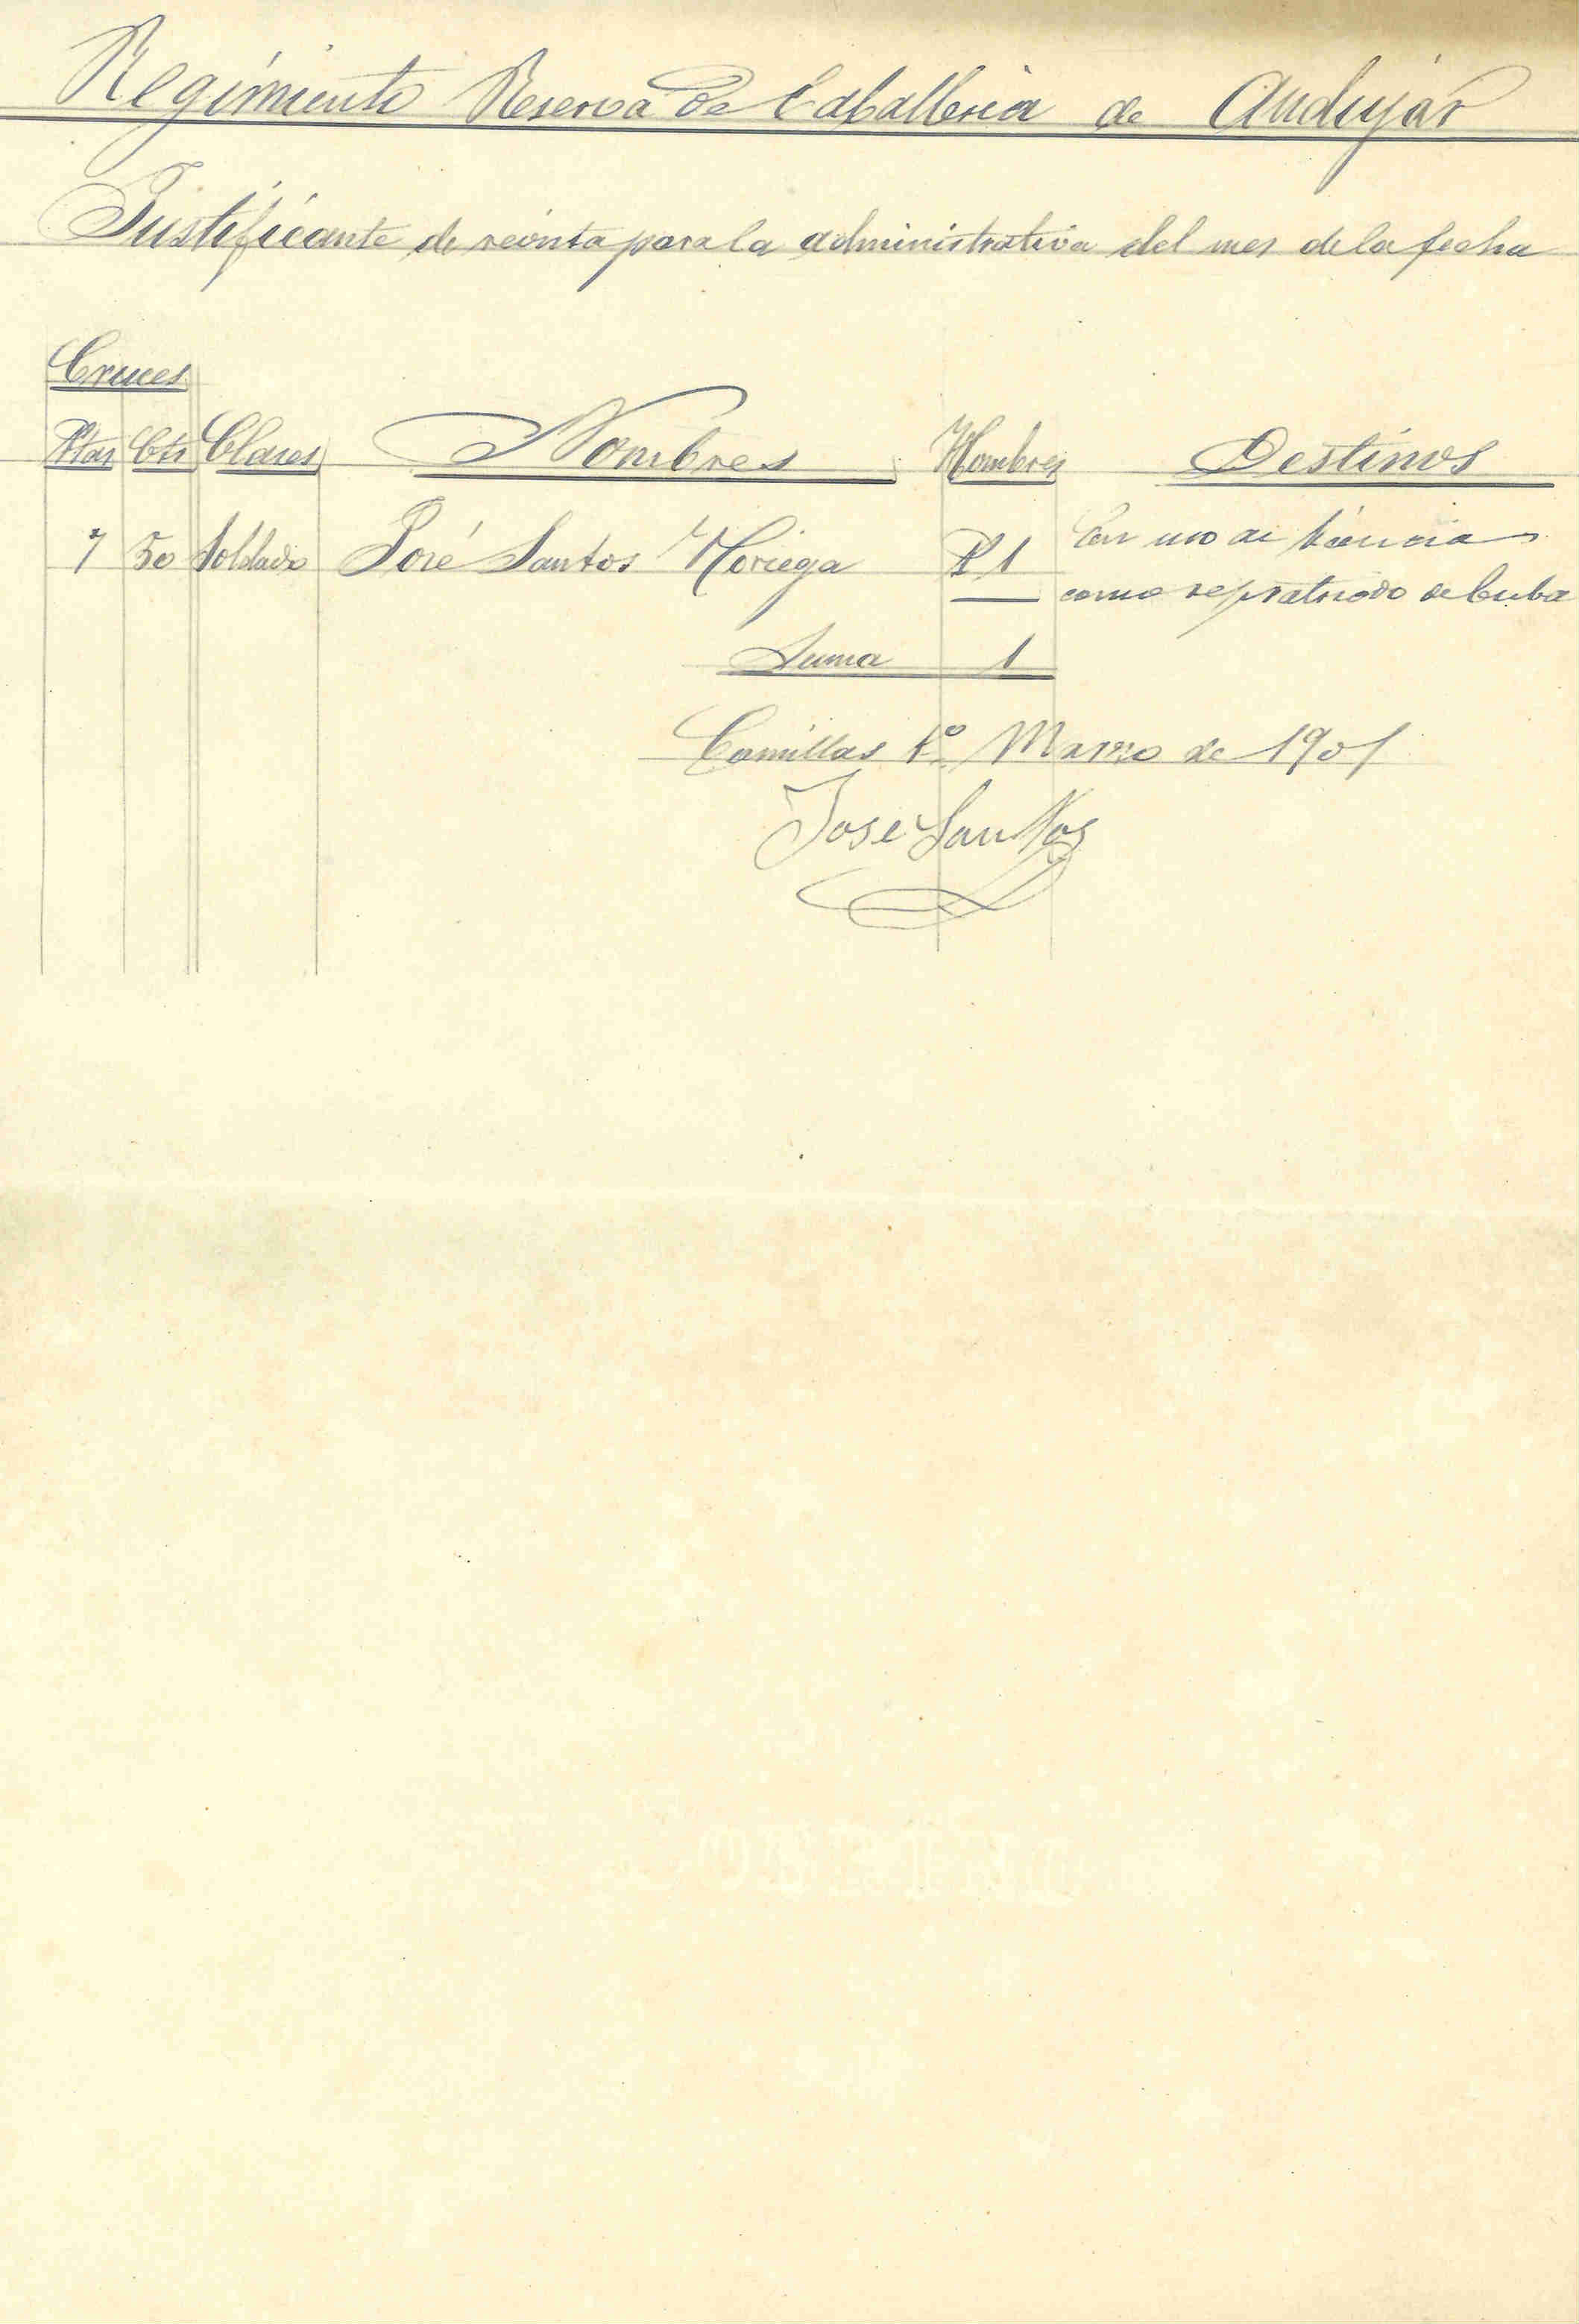 Regimiento Reserva de Caballeria de Andujar
Justificante de revista para la administrativa del mes de la fecha
Cruces
Ptas Cts Clases Nombres Hombres Destinos
7 50 Soldado José Santos Noriega P 1 Con uso de licencia
como repratriado de Cuba
Suma 1
Comillas 1º Marzo de 1901
Jose Santos